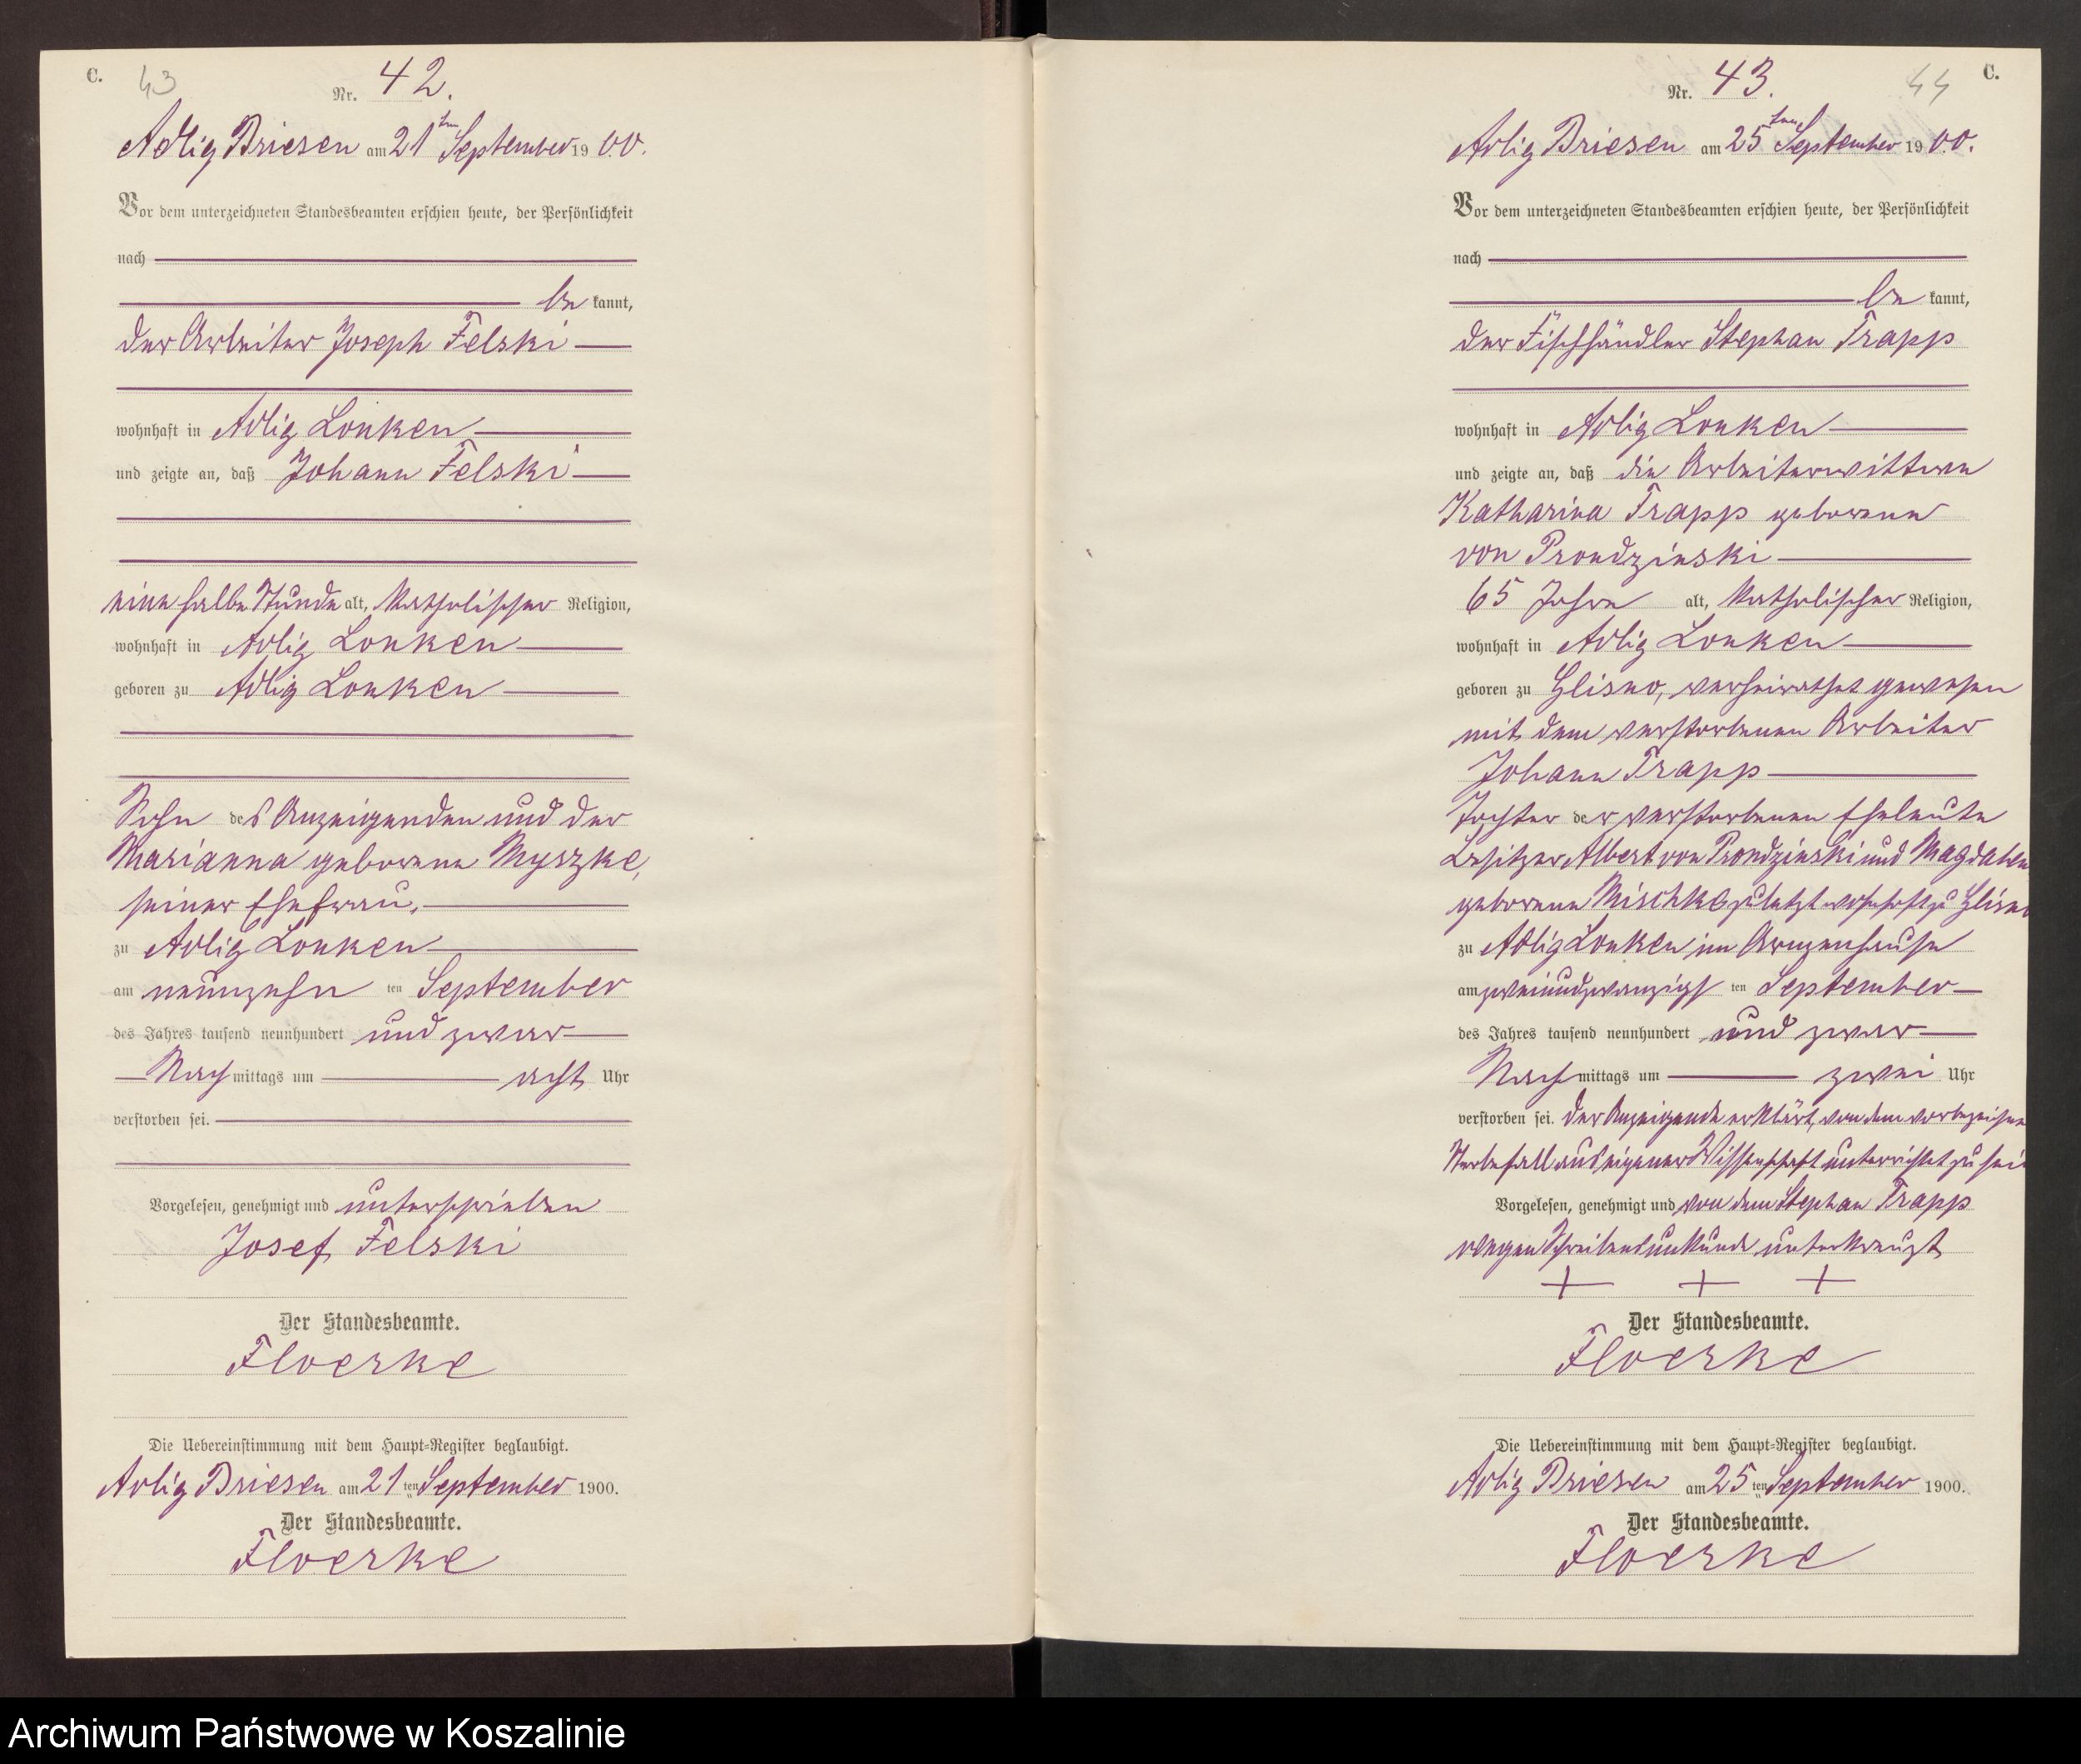 C. 43
Nr. 42.
Adlig Briesen am 21ten September 1900.
Vor dem unterzeichneten Standesbeamten erschien heute, der Persönlichkeit
nach
bekannt,
der Arbeiter Joseph Felski
wohnhaft in Adlig Lonken
und zeigte an, daß Johann Felski
eine halbe Stunde alt, katholischer Religion,
wohnhaft in Adlig Lonken
geboren zu Adlig Lonken
Sohn des Anzeigenden und der
Marianna geborene Myszke,
seiner Ehefrau,
zu Adlig Lonken
am neunzehnten September
des Jahres tausend neunhundert und zwar
Nachmittags um acht Uhr
verstorben sei.
Vorgelesen, genehmigt und unterschrieben
Josef Felski
Der Standesbeamte.
Floerke
Die Uebereinstimmung mit dem Haupt-Register beglaubigt.
Adlig Briesen am 21ten September 1900.
Der Standesbeamte.
Floerke
44 C.
Nr. 43.
Adlig Briesen am 25ten September 1900.
Vor dem unterzeichneten Standesbeamten erschien heute, der Persönlichkeit
nach
bekannt,
der Fischhändler Stephan Trapp
wohnhaft in Adlig Lonken
und zeigte an, daß die Arbeiterwittwe
Katharina Trapp geborene
von Prondzinski
65 Jahre alt, katholischer Religion,
wohnhaft in Adlig Lonken
geboren zu Glisno, verheirathet gewesen
mit dem verstorbenen Arbeiter
Johann Trapp
Tochter der verstorbenen Eheleute
Besitzer Albert von Prondzinski und Magdalen
geborene Mischke zuletzt wohnhaft zu Glisno
zu Adlig Lonken im Armenhause
am zweiundzwanzigsten September
des Jahres tausend neunhundert und zwar
Nachmittags um zwei Uhr
verstorben sei. Der Anzeigende erklärt, von dem
Sterbefall aus eigener Wissenschaft unterrichtet zu sein
Vorgelesen, genehmigt und von dem Stephan Trapp
wegen Schreibensunkunde unterkreuzt
+ + +
Der Standesbeamte.
Floerke
Die Uebereinstimmung mit dem Haupt-Register beglaubigt.
Adlig Briesen am 25ten September 1900.
Der Standesbeamte.
Floerke
Archiwum Państwowe w Koszalinie